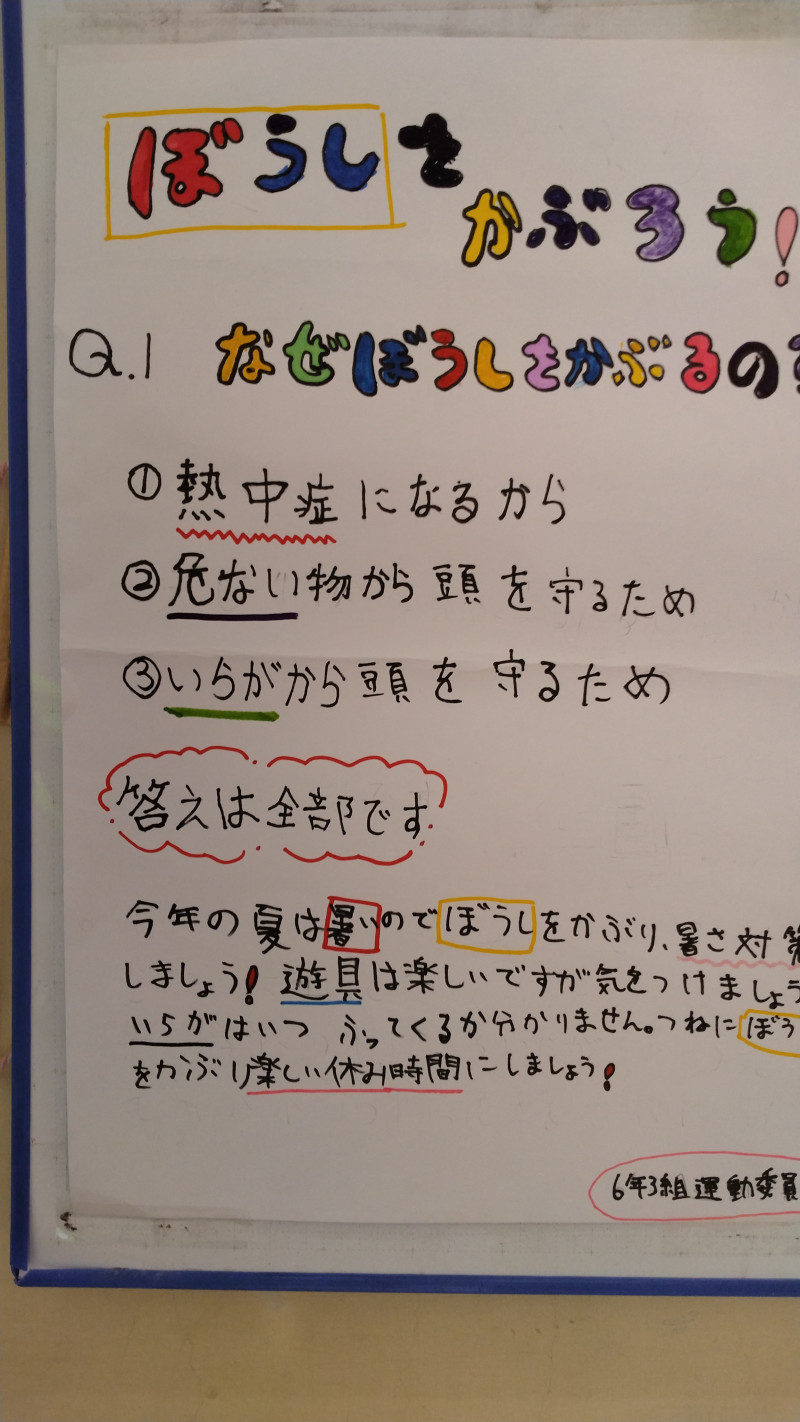 ぼうしを
かぶろう!
Q.1 なぜぼうしをかぶるの
① 熱中症になるから
② 危ない物から頭を守るため
③ いらがから頭を守るため
答えは全部です
今年の夏は暑いのでぼうしをかぶり、暑さ対策
しましょう! 遊具は楽しいですが気をつけましょう
いらがはいつふってくるか分かりません。つねにぼう
をかぶり楽しい休み時間にしましょう!
6年3組運動委員